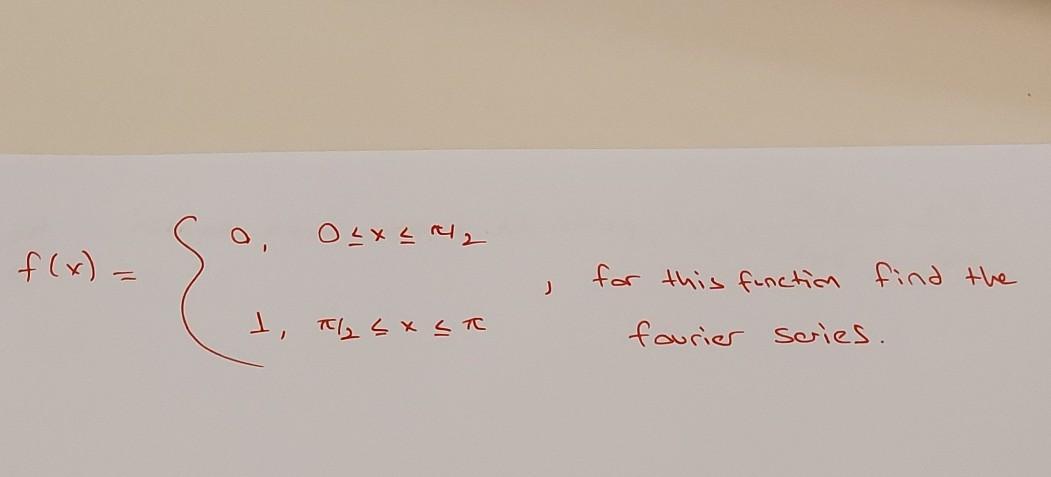 f(x) = { 0, 0 ≤ x ≤ π/2
1, π/2 ≤ x ≤ π
, for this function find the
fourier series.